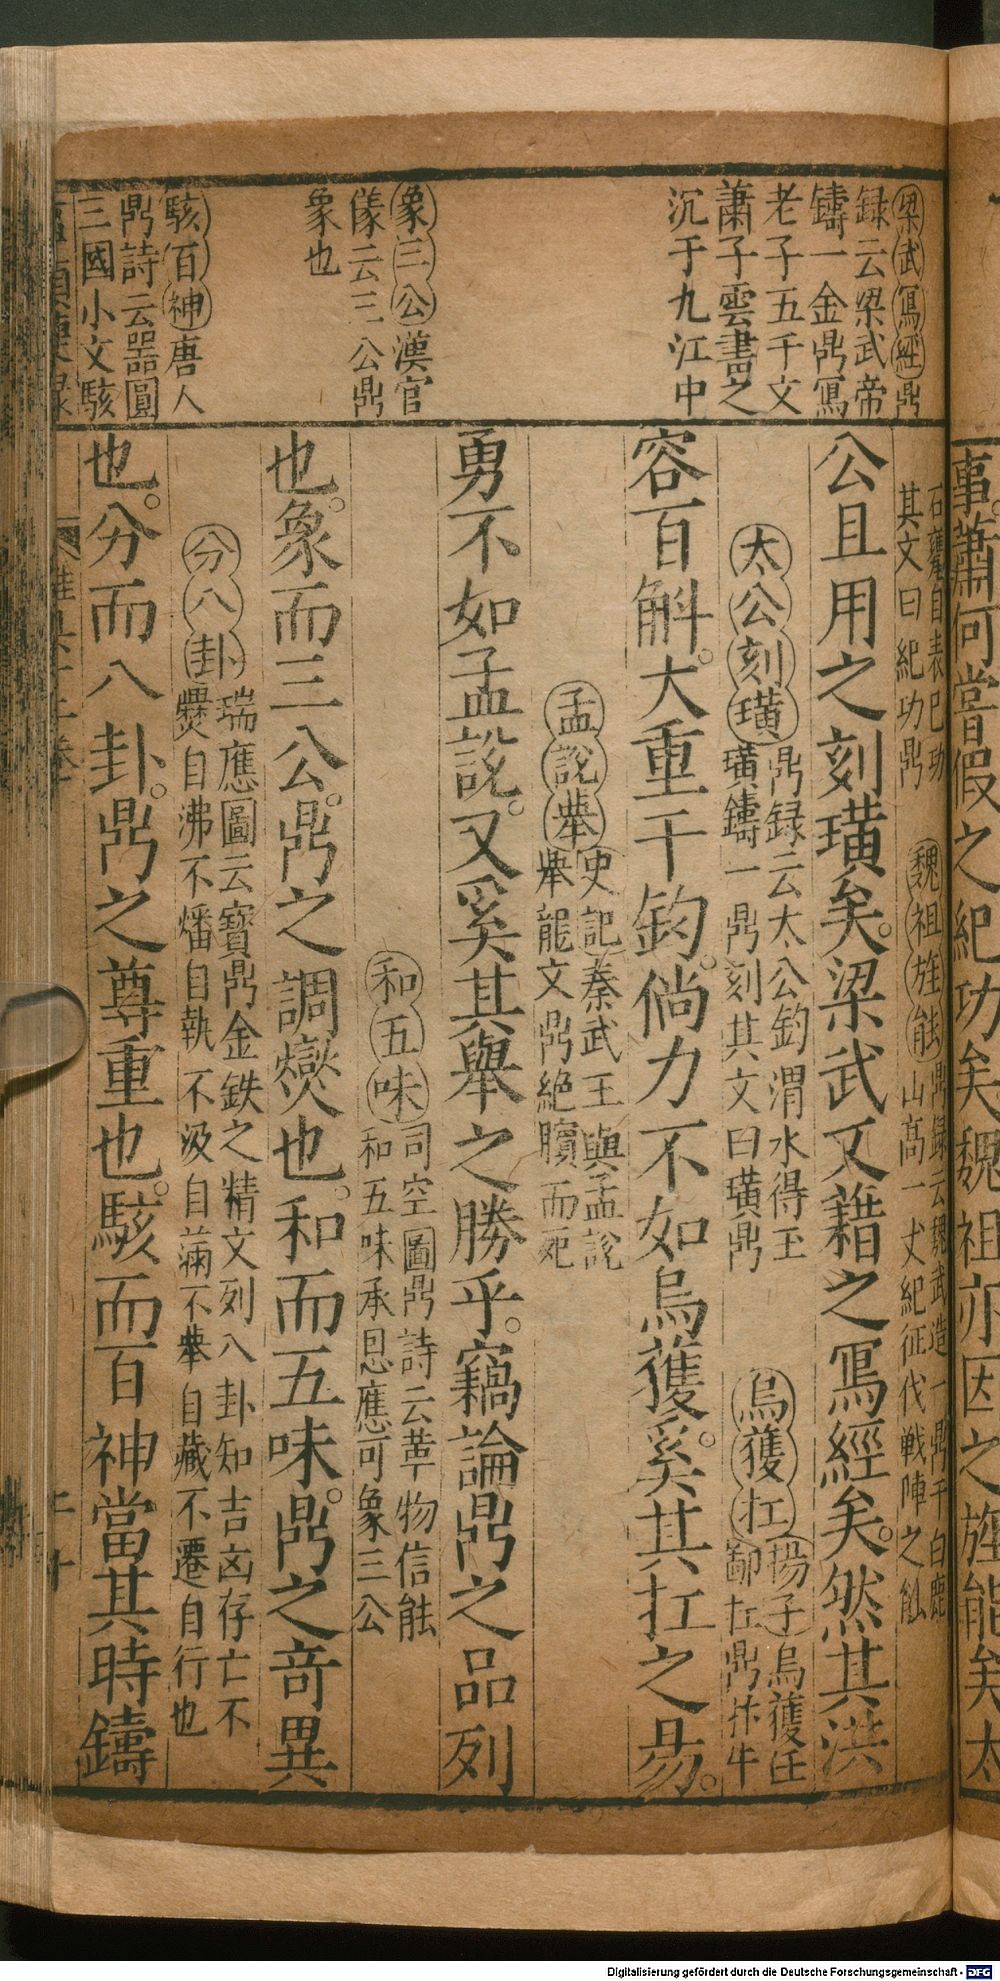 事蕭何嘗假之紀功矣魏祖亦因之旌能矣太
梁武寫經鼎
録云梁武帝
鑄一金鼎寫
老子五千文
蕭子雲書之
沉于九江中
象三公漢官
儀云三公鼎
象也
駭百神唐人
鼎詩云器圓
三國小文駭
石甕自表已功
其文曰紀功鼎
魏祖旌能鼎録云魏武造一鼎于白鹿
山高一丈紀征伐戦陣之能
公且用之刻璜矣。梁武又藉之寫經矣。然其洪
太公刻璜鼎録云太公釣渭水得玉
璜鑄一鼎刻其文曰璜鼎
烏獲扛揚子烏獲任
鄙扛鼎抃牛
容百斛。大重千鈞。倘力不如烏獲。奚其扛之昜。
孟說舉史記秦武王與孟說
舉龍文鼎絶臏而死
勇不如孟說。又奚其舉之勝乎。竊論鼎之品列
和五味司空圖鼎詩云革物信能
和五味承恩應可象三公
也。象而三公。鼎之調爕也。和而五味。鼎之竒異
分八卦瑞應圖云寶鼎金鉄之精文列八卦知吉凶存亡不
爨自沸不燔自執不汲自滿不舉自藏不遷自行也
也。分而八卦。鼎之尊重也。駭而百神當其時鑄